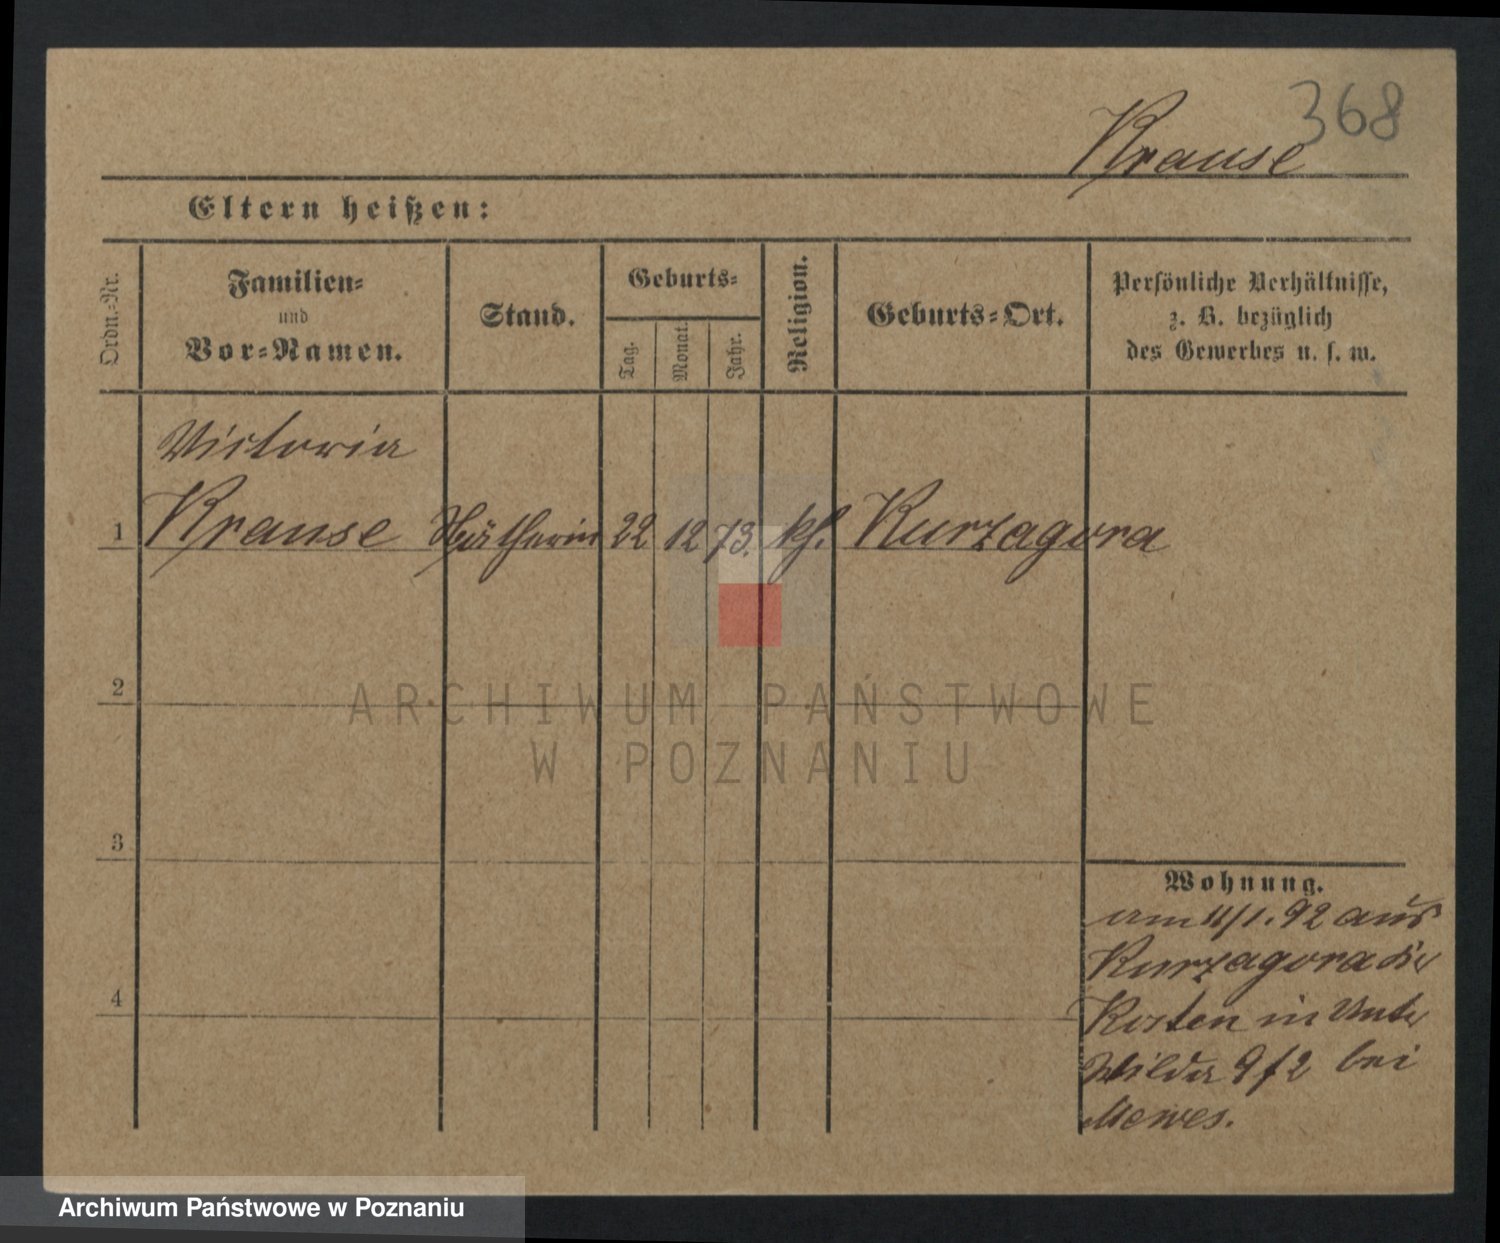 368
Krause
Eltern heißen:
Ordn.-Nr.
Familien-
und
Vor-Namen.
Stand.
Geburts-
Tag.
Monat.
Jahr.
Religion.
Geburts-Ort.
Persönliche Verhältnisse,
z. B. bezüglich
des Gewerbes u. s. w.
Victoria
1 Krause 22 12 73. kh. Kurzagora
2
ARCHIWUM PAŃSTWOWE
W POZNANIU
3
4
Wohnung.
am 11/1. 92 aus
Kurzagora
Kosten in Unter
Wilda 9 f 2 bei
Mewes.
Archiwum Państwowe w Poznaniu